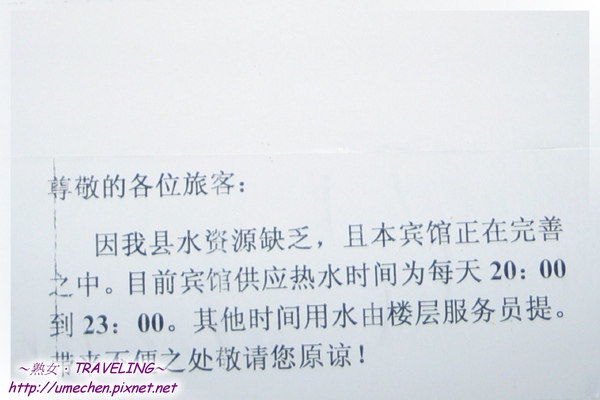 尊敬的各位旅客：
因我县水资源缺乏，且本宾馆正在完善
之中。目前宾馆供应热水时间为每天 20：00
到 23：00。其他时间用水由楼层服务员提。
带来不便之处敬请您原谅！
～熟女·TRAVELING～
http://umechen.pixnet.net